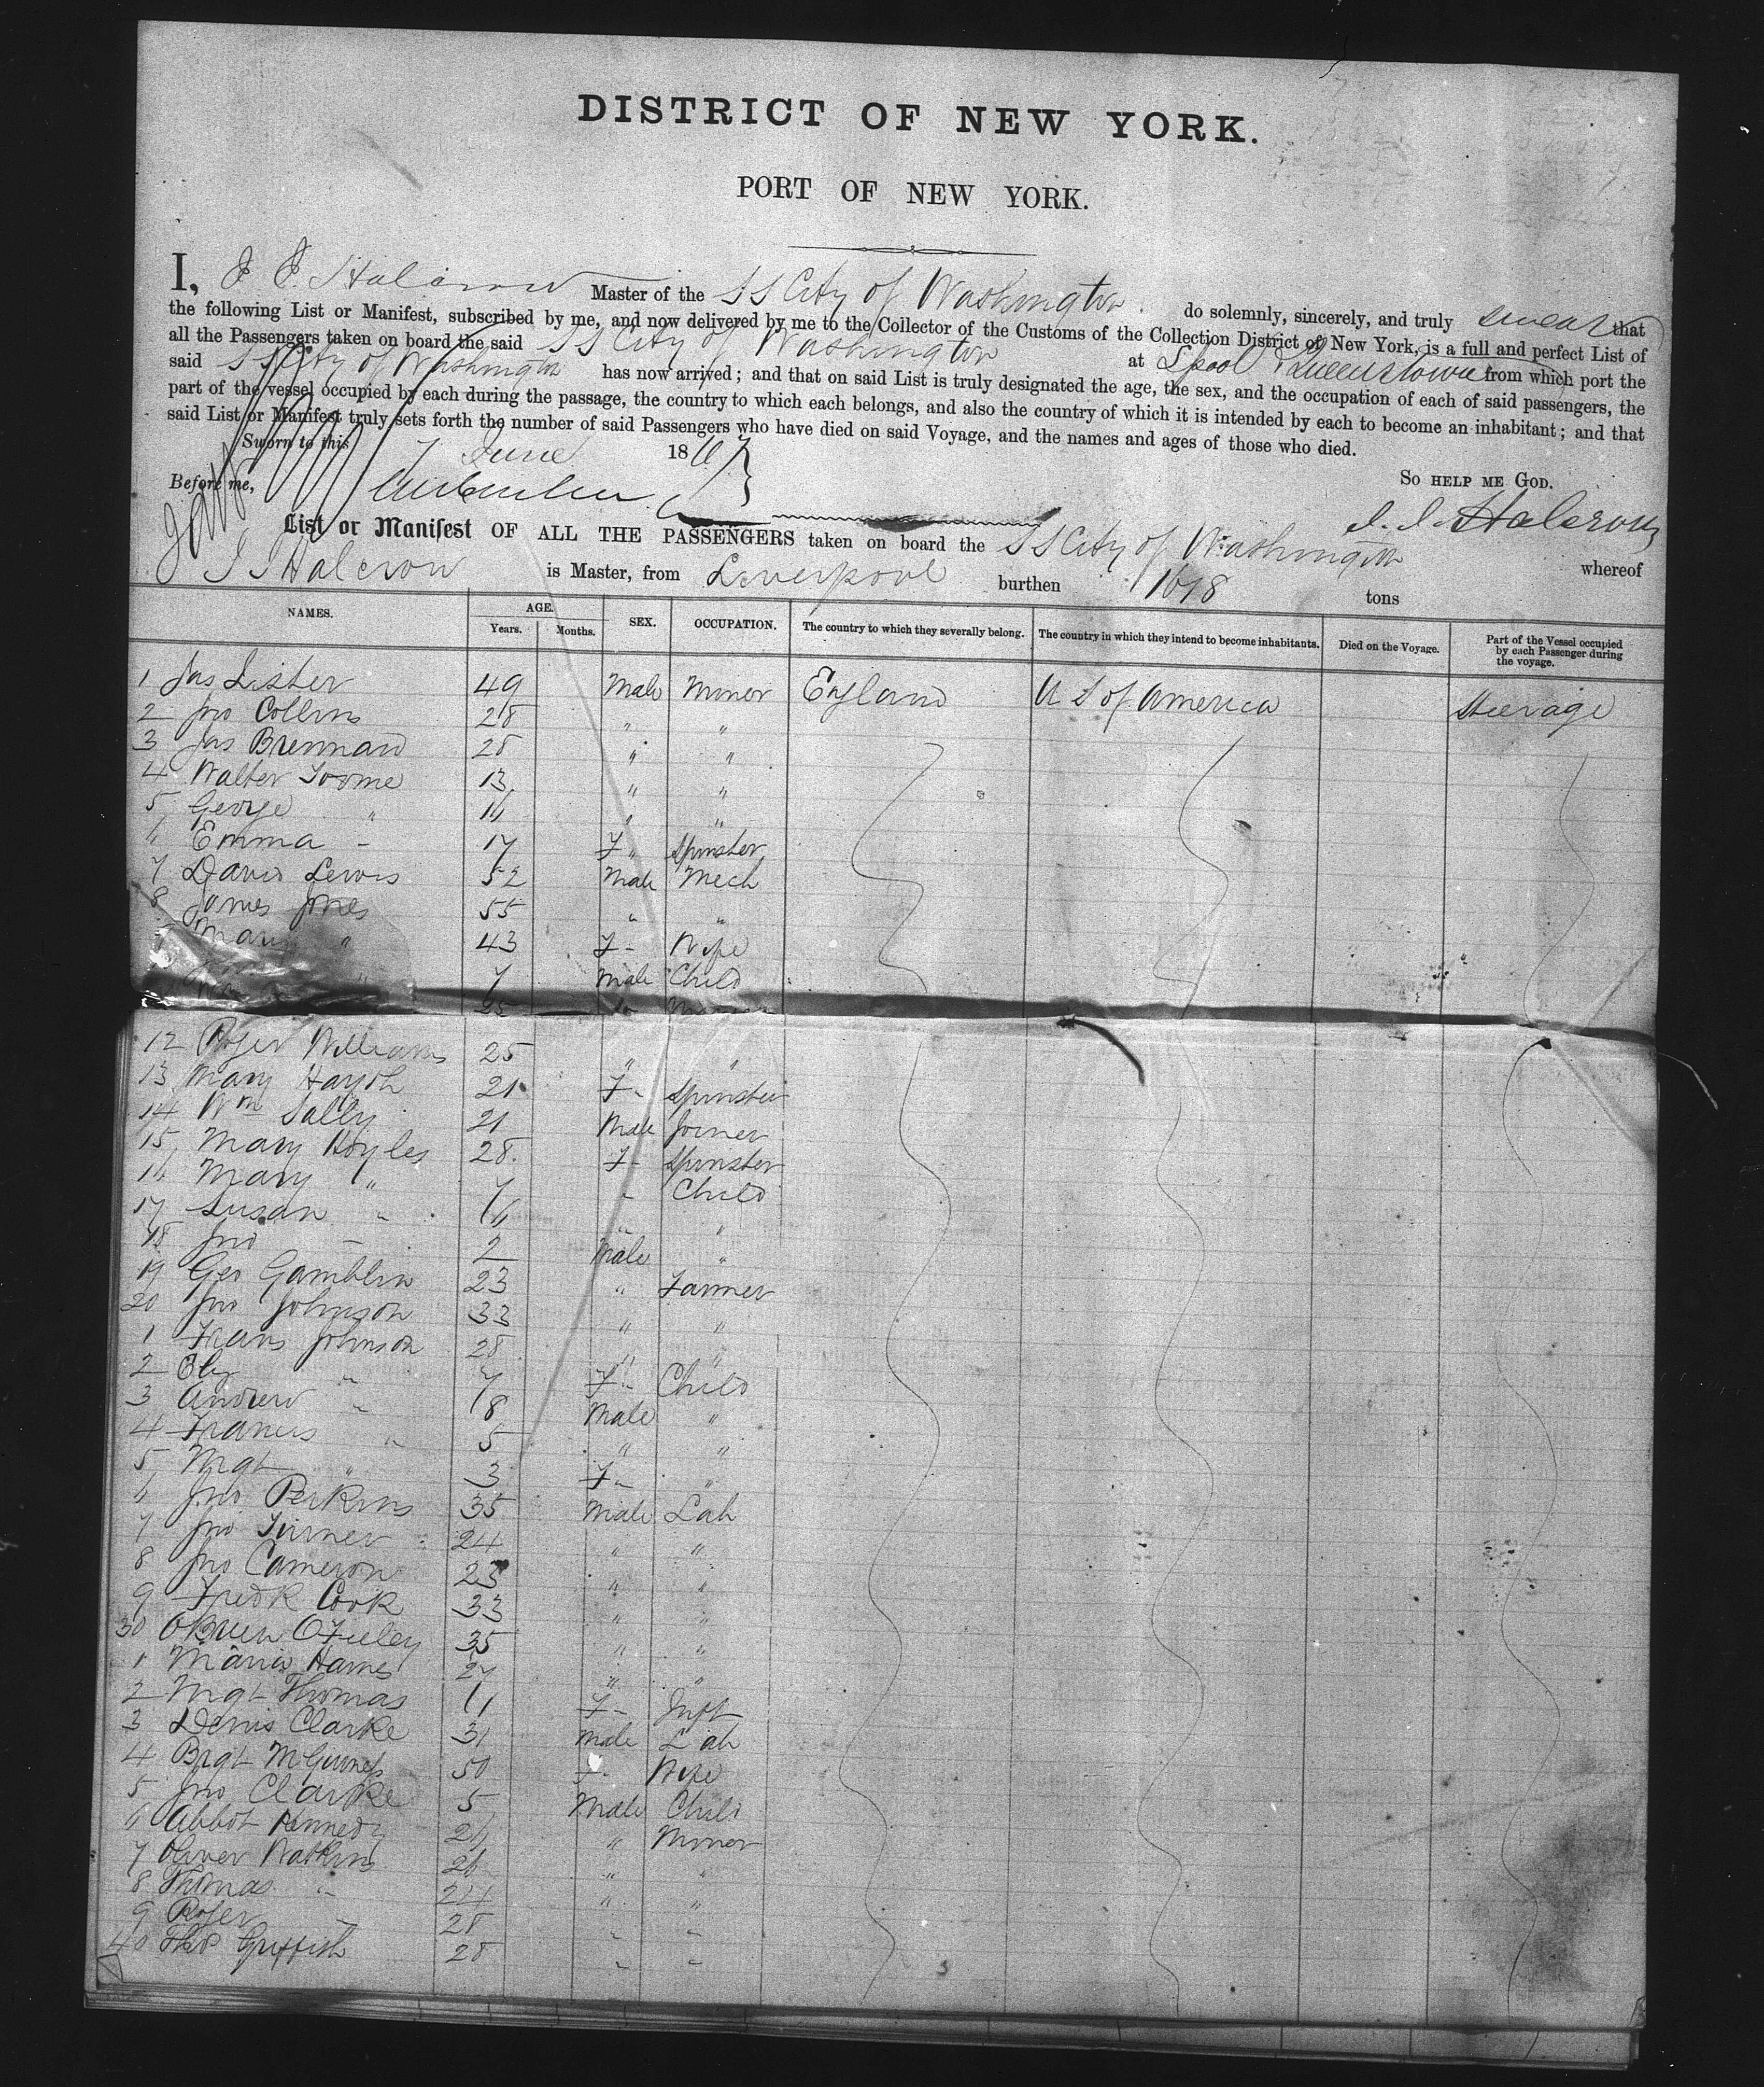 DISTRICT OF NEW YORK.
PORT OF NEW YORK.
I, J J Halcrow Master of the SS City of Washington do solemnly, sincerely, and truly swear that
the following List or Manifest, subscribed by me, and now delivered by me to the Collector of the Customs of the Collection District of New York, is a full and perfect List of
all the Passengers taken on board the said SS City of Washington at Lpool & Queenstown from which port the
said SS City of Washington has now arrived; and that on said List is truly designated the age, the sex, and the occupation of each of said passengers, the
part of the vessel occupied by each during the passage, the country to which each belongs, and also the country of which it is intended by each to become an inhabitant; and that
said List or Manifest truly sets forth the number of said Passengers who have died on said Voyage, and the names and ages of those who died.
Sworn to this 7 June 1867
So help me God.
Before me, J. J. Halcrow
List or Manifest OF ALL THE PASSENGERS taken on board the SS City of Washington whereof
J J Halcrow is Master, from Liverpool burthen 1678 tons
NAMES. AGE. Years. Months. SEX. OCCUPATION. The country to which they severally belong. The country in which they intend to become inhabitants. Died on the Voyage. Part of the Vessel occupied by each Passenger during the voyage.
1 Jas Lister 49 Male Miner England U S of America Steerage
2 Jno Collins 28 " "
3 Jas Brennan 28 " "
4 Walter Toome 13 " "
5 George " 16 " "
6 Emma - 17 F " Spinster
7 David Lewis 52 Male Mech
8 James Jones 55 " "
Mary " 43 F - Wife
" 7 Male Child
25
12 Roger Williams 25 " "
13 Mary Hayoh 21 F - Spinster
14 Wm Sally 21 Male Joiner
15 Mary Hoyles 28 F - Spinster
16 Mary " 7 " Child
17 Susan " 6 " "
18 Jno - 2 Male "
19 Geo Gamblin 23 " Farmer
20 Jno Johnson 33 " "
1 Frans Johnson 28 " "
2 Eliz " 7 F - Child
3 Andrew " 8 Male "
4 Francis " 5 " "
5 Mgt " 3 F - "
6 Jno Perkins 35 Male Lab
7 Jno Turner 24 " "
8 Jno Cameron 23 " "
9 Fredk Cook 33 " "
30 OBrien 35 " "
1 Maria Harris 27 " "
2 Mgt Thomas 11 F - Inft
3 Denis Clarke 31 Male Lab
4 Brgt McGuiness 50 F - Wife
5 Jno Clarke 5 Male Child
6 Abbot Kennedy 26 " Miner
7 Oliver Watkins 26 " "
8 Thomas " 24 " "
9 Roger - 28 " "
40 Thos Griffith 28 " "